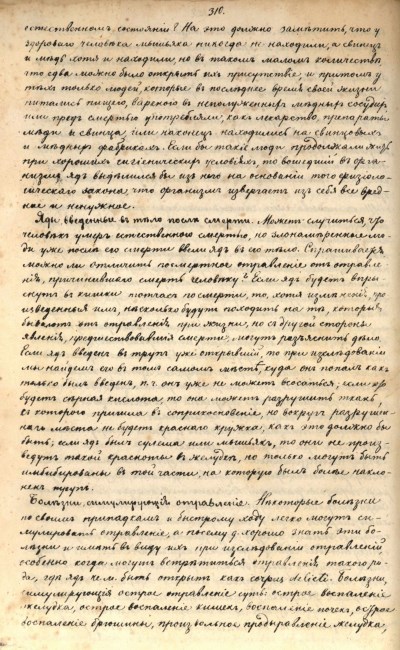 310.
естественномъ состоянiи? На это должно замѣтить, что у
здороваго человѣка мышьяка никогда не находили, а свинецъ
и мѣдь хотя и находили, но въ такомъ маломъ количествѣ,
что едва можно было открыть ихъ присутствiе, и притомъ у
тѣхъ только людей, которые въ последнее время своей жизни
питались пищею, вареною въ нелуженныхъ мѣдныхъ сосудахъ,
или предъ смертью употребляли, какъ лекарство, препараты
мѣди и свинца, или наконецъ находились на свинцовыхъ
и мѣдныхъ фабрикахъ. Если бы такiе люди продолжали жить
при хорошихъ гигiеническихъ условiяхъ, то вошедшiй въ орга-
низмъ ядъ выдѣлился бы изъ него на основанiи того физiоло-
гическаго закона, что организмъ извергаетъ изъ себя все вред-
ное и ненужное.
Яды введенные въ тѣло послѣ смерти. Можетъ случиться, что
человѣкъ умеръ естественною смертью, но злонамѣренные лю-
ди уже послѣ его смерти ввели ядъ въ его тѣло. Спрашивается,
можно ли отличить посмертное отравленiе отъ отравле-
нiя, причинившаго смерть человѣку? Если ядъ будетъ впры-
снутъ въ кишки тотчасъ по смерти, то, хотя измѣненiя, про
изведенныя имъ, насколько будутъ походить на тѣ, которыя
бываютъ отъ отравленiя при жизни, но съ другой стороны
явленiя, предшествовавшiя смерти, могутъ разъяснить дѣло.
Если ядъ введенъ въ трупъ уже остывшiй, то при изслѣдованiи
мы найдемъ его въ томъ самомъ мѣстѣ, куда онъ попалъ какъ
только былъ введенъ, п. ч. онъ уже не можетъ всосаться; если это
будетъ сѣрная кислота, то она можетъ разрушить ткань,
съ которою пришла въ соприкосновенiе, но вокругъ разрушен-
наго мѣста не будетъ краснаго кружка, какъ это должно бы
быть; если ядъ былъ сулема или мышьякъ, то они не произ-
ведутъ такой красноты въ желудкѣ, но только могутъ быть
имбибированы въ той части, на которую былъ болѣе накло-
ненъ трупъ.
Болѣзни, симулирующiя отравленiе. Нѣкоторые болѣзни
по своимъ припадкамъ и быстрому ходу легко могутъ си-
мулировать отравленiе, а посему д. хорошо знать эти бо-
лѣзни и имѣть въ виду ихъ при изслѣдованiи отравленiй
особенно когда могутъ встрѣтиться отравленiя такого ро-
да, гдѣ ядъ ч. м. быть открытъ какъ corpus delicti. Болѣзни,
симулирующiя острое отравленiе суть: острое воспаленiе
желудка, острое воспаленiе кишекъ, воспаленiе почекъ, острое
воспаленiе брюшины, произвольное продыравленiе желудка,